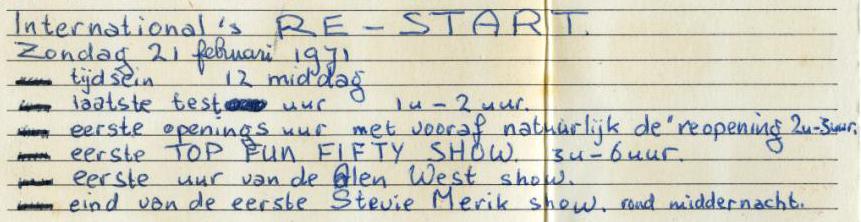 International's RE-START.
Zondag 21 februari 1971
tijdsein 12 middag
laatste test uur 1u-2uur.
eerste openings uur met vooraf natuurlijk de "reopening 2u-3uur.
eerste TOP FUN FIFTY SHOW. 3u-6uur.
eerste uur van de Alen West show.
eind van de eerste Stevie Merik show. rond middernacht.